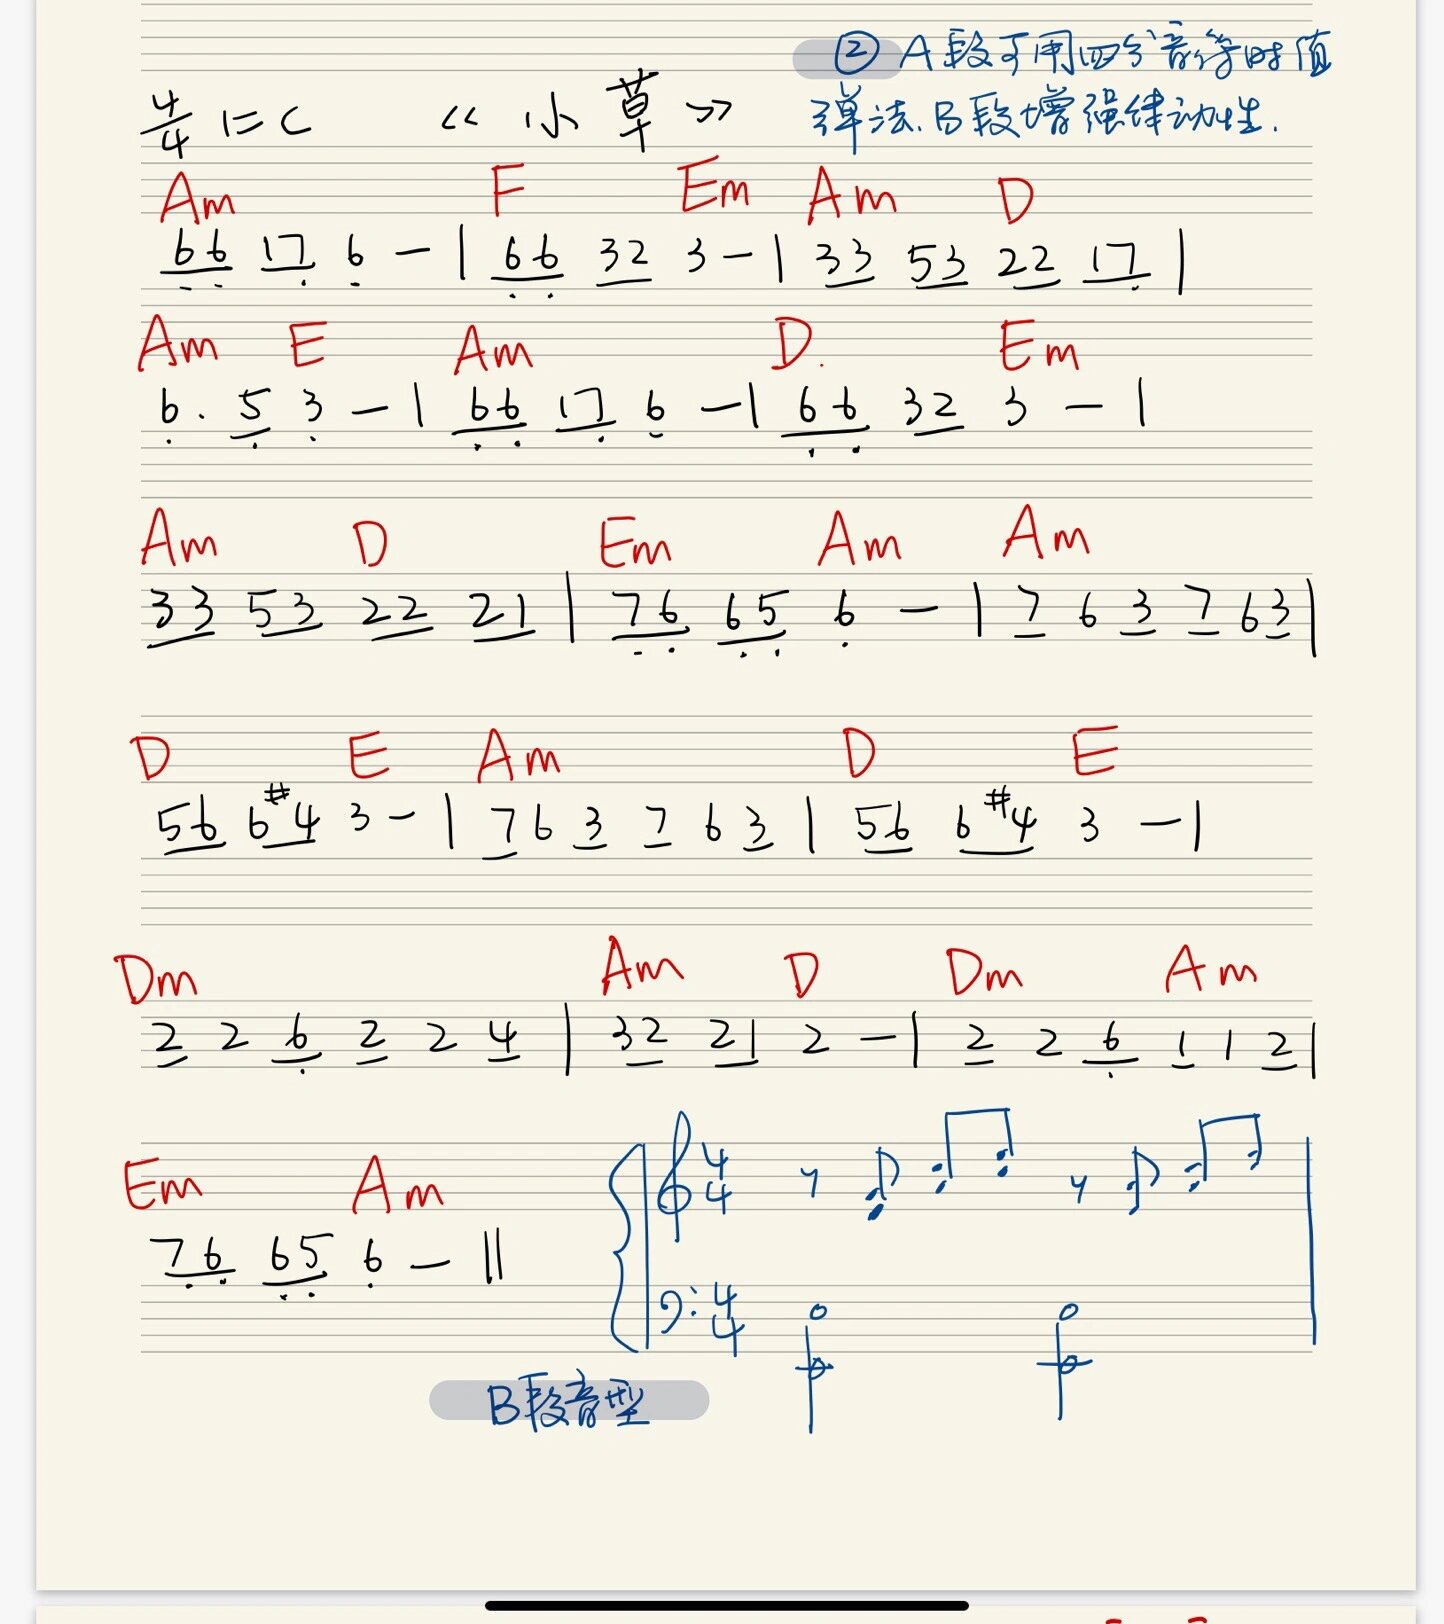 ② A段可用四分音符时值
弹法.B段增强律动性.
4/4 1=C 《小草》
Am F Em Am D
66 17 6 - | 66 32 3 - | 33 53 22 17 |
Am E Am D. Em
6. 5 3 - | 66 17 6 - | 66 32 3 - |
Am D Em Am Am
33 53 22 21 | 76 65 6 - | 7 6 3 7 6 3 |
D E Am D E
56 6#4 3 - | 7 6 3 7 6 3 | 56 6#4 3 - |
Dm Am D Dm Am
2 2 6 2 2 4 | 32 21 2 - | 2 2 6 1 1 2 |
Em Am
76 65 6 - ||
4
4
4
4
B段音型